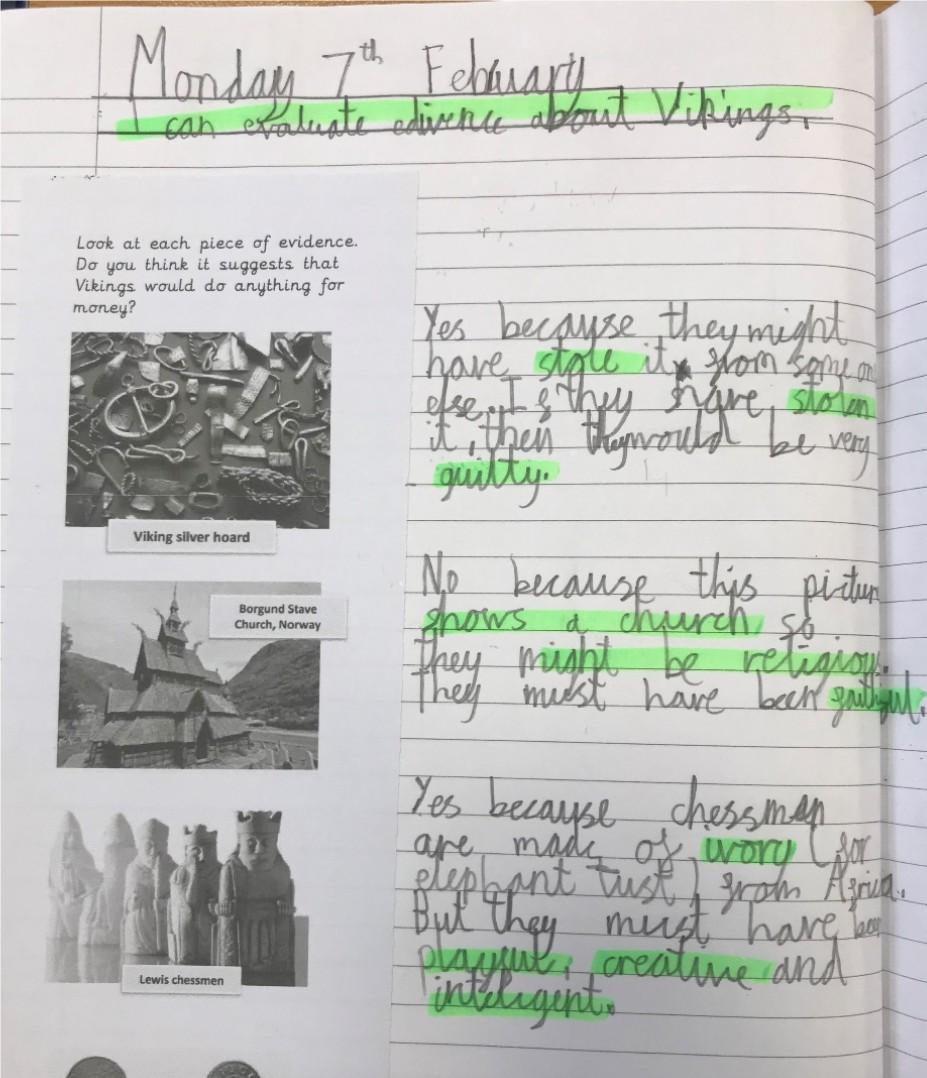 Monday 7th Febuary
I can evaluate edivence about Vikings.
Look at each piece of evidence.
Do you think it suggests that
Vikings would do anything for
money?
Yes because they might
have stole it from someon
else. If they have stolen
it, then they would be very
guilty.
Viking silver hoard
No because this pictur
shows a church so
they might be religious.
they must have been faithful.
Borgund Stave
Church, Norway
Yes because chessmen
are made of ivory (for
elephant tust) from Africa.
But they must have bee
playful, creative and
inteligent.
Lewis chessmen